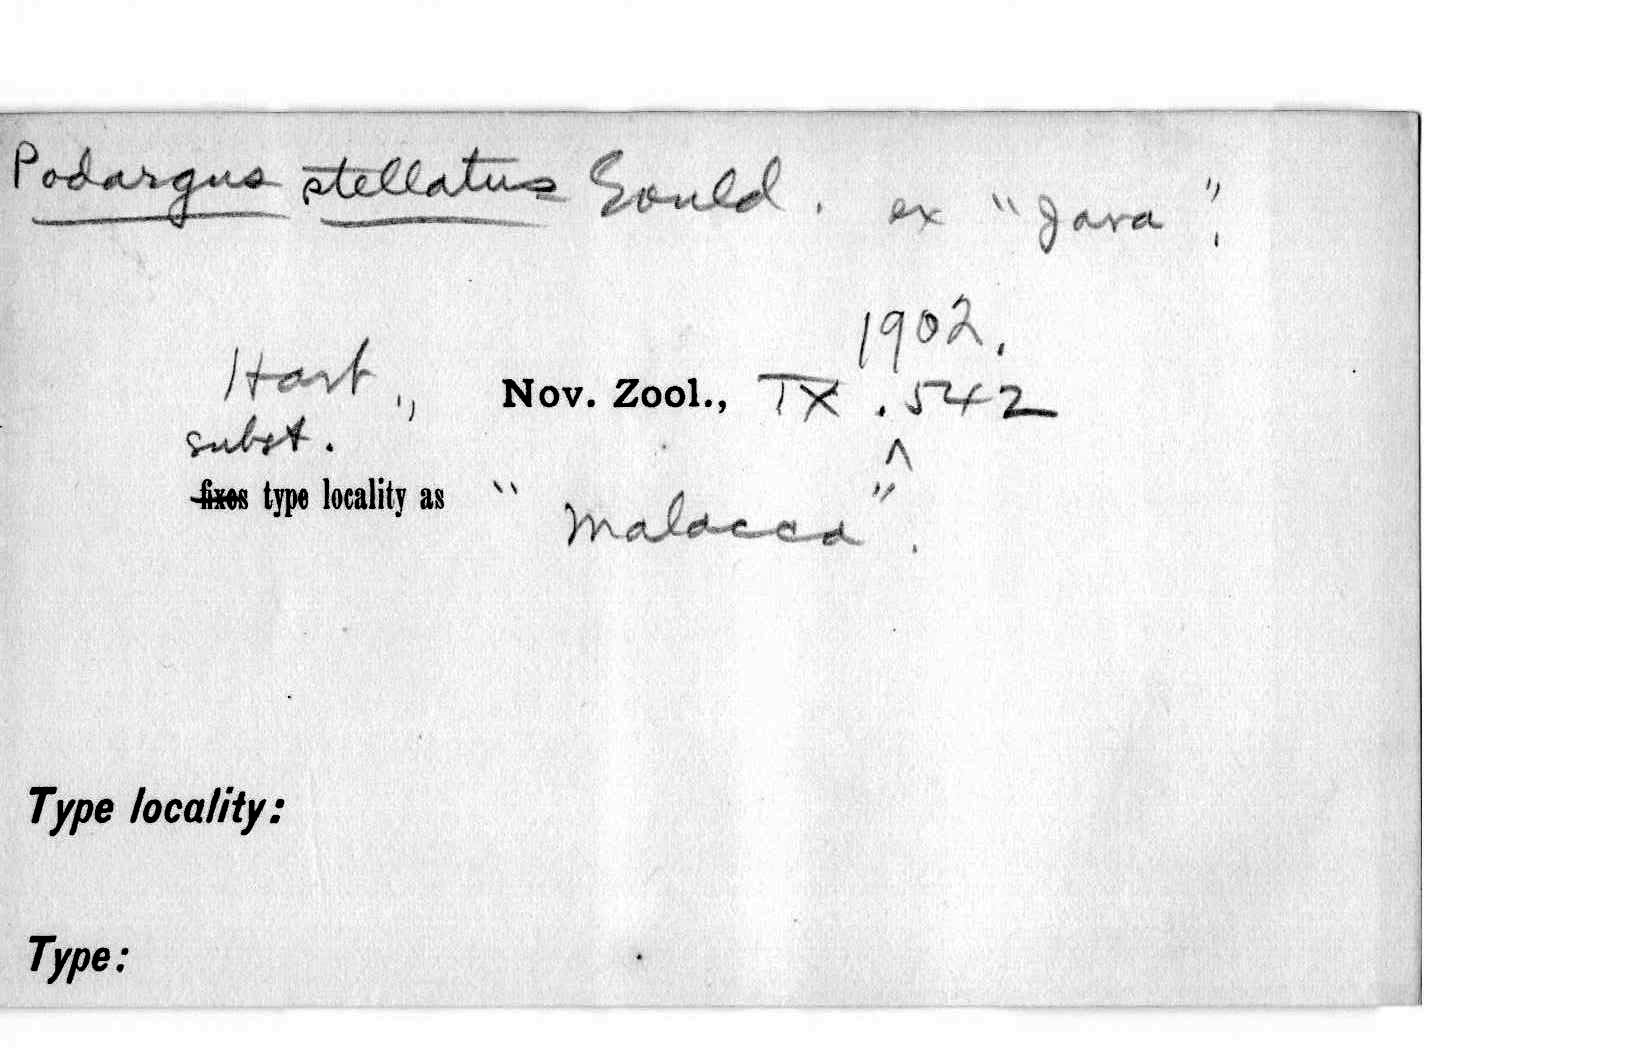 Podargus stellatus Gould. ex "Java".
1902.
Hart., Nov. Zool., IX. 542
subst.
fixes type locality as "Malacca".
Type locality:
Type: